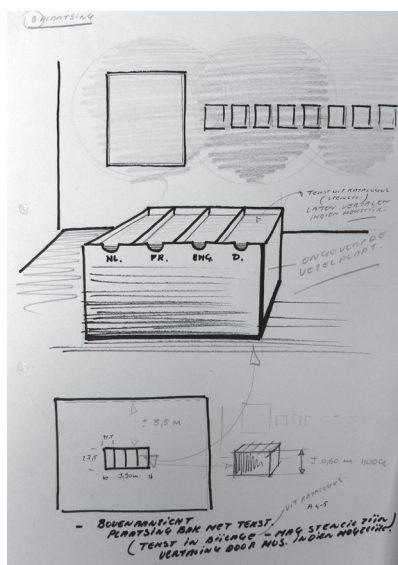 3 PLAATSING
TEKST UIT KATALOGUS
(STENCIL)
LATEN VERTALEN
INDIEN MOGELIJK.
NL. FR. ENG. D.
ONGEVERFDE
VEZELPLAAT.
± 3,5 M
27,5
± 0,60 M HOOG
UIT KATALOGUS
A 4-5
- BOVENAANZICHT
PLAATSING BAK MET TEKST.
(TEKST IN BIJLAGE - MAG STENCIL ZIJN
VERTALING DOOR MUS. INDIEN MOGELIJK.